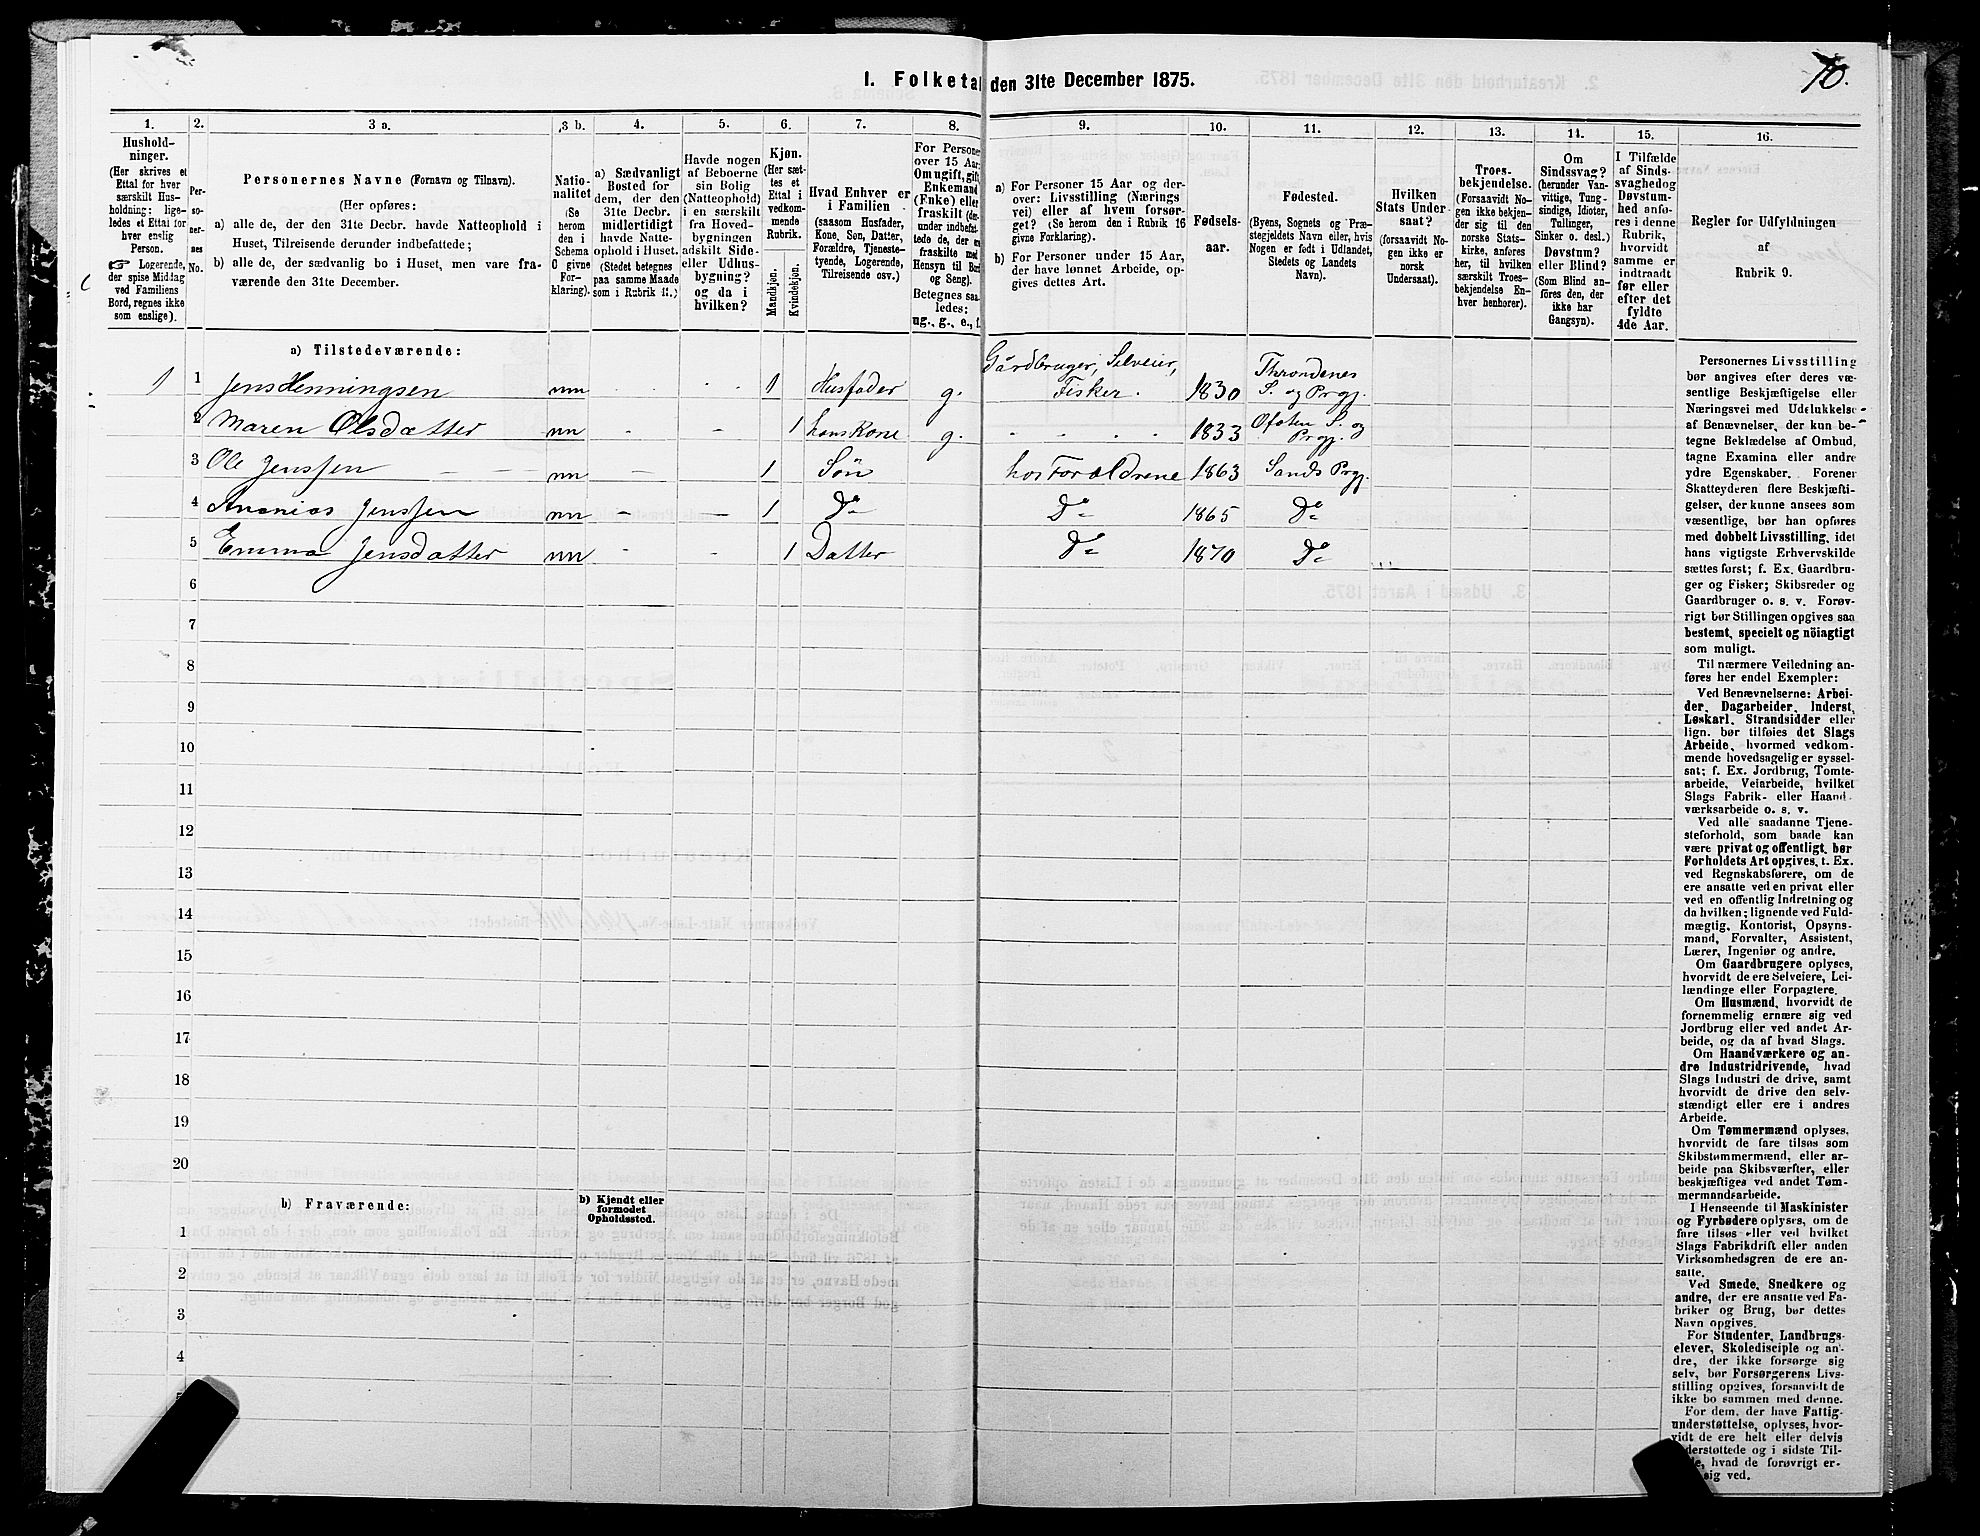 70.
I. Folketa den 31te December 1875.
1. 2. 3 a. 3 b. 4. 5. 6. 7. 8. 9. 10. 11. 12. 13. 14. 15. 16.
Hushold-
ninger.
(Her skrives et
Ettal for hver
særskilt Hus-
holdning; lige-
ledes et Ettal for
hver enslig
Person.
☞ Logerende,
der spise Middag
ved Familiens
Bord, regnes ikke
som enslige).
Per-
so-
ner-
nes
No.
Personernes Navne (Fornavn og Tilnavn).
(Her opføres:
a) alle de, der den 31te Decbr. havde Natteophold i
Huset, Tilreisende derunder indbefattede;
b) alle de, der sædvanlig bo i Huset, men vare fra-
værende den 31te December.
Natio-
nalitet
(Se
herom
den i
Schema
C givne
For-
klaring).
a) Sædvanligt
Bosted for
dem, der den
31te Decbr.
midlertidigt
havde Natte-
ophold i Huset.
(Stedet betegnes
paa samme Maade
som i Rubrik 11.)
Havde nogen
af Beboerne
sin Bolig
(Natteophold)
i en særskilt
fra Hoved-
bygningen
adskilt Side-
eller Udhus-
bygning?
og da i
hvilken?
Kjøn.
(Her sæt-
tes et
Ettal i
vedkom-
mende
Rubrik.
Mandkjøn.
Kvindekjøn.
Hvad Enhver er
i Familien
(saasom Husfader,
Kone, Søn, Datter,
Forældre, Tjeneste-
tyende, Logerende,
Tilreisende osv.)
For Persone
over 15 Aar
Om ugift, gift
Enkemand
(Enke) eller
fraskilt (der-
under indbefat-
tede de, der er
fraskilte med
Hensyn til Bord
og Seng).
Betegnes saa-
ledes:
ug., g., e., f.
a) For Personer 15 Aar og der-
over: Livsstilling (Nærings
vei) eller af hvem forsør-
get? (Se herom den i Rubrik 16
givne Forklaring).
b) For Personer under 15 Aar,
der have lønnet Arbeide, op-
gives dettes Art.
Fødsels-
aar.
Fødested.
(Byens, Sognets og Præ-
stegjeldets Navn eller, hvis
Nogen er født i Udlandet,
Stedets og Landets
Navn).
Hvilken
Stats Under-
saat?
(forsaavidt No-
gen ikke er
norsk
Undersaat).
Troes-
bekjendelse.
(Forsaavidt No-
gen ikke bekjen-
der sig til den
norske Stats-
kirke, anføres
her, til hvilken
særskilt Troes-
bekjendelse En-
hver henhører).
Om
Sindssvag?
(herunder Van-
vittige, Tung-
sindige, Idioter,
Sinker o. desl.)
Døvstum?
eller Blind?
(Som Blind an-
føres den, der
ikke har
Gangsyn).
I Tilfælde
af Sinds-
svaghed og
Døvstum-
hed anfø-
res i denne
Rubrik,
hvorvidt
samme er
indtraadt
før eller
efter det
fyldte
4de Aar.
Regler for Udfyldningen
af
Rubrik 9.
a) Tilstedeværende:
1 1 Jens Henningsen nn 1 Husfader g. Gårdbruger, Selveier, Fisker. 1830 Throndenes S. og Prgj.
2 Maren Olsdatter nn 1 hans Kone g. 1833 Ofoten S. og Prgj.
3 Ole Jenssen nn 1 Søn hos Forældrene 1863 Sands Prgj.
4 Ananias Jenssen nn 1 Do Do 1865 Do
5 Emma Jensdatter nn 1 Datter Do 1870 Do
6
7
8
9
10
11
12
13
14
15
16
17
18
19
20
b) Fraværende:
b) Kjendt eller
formodet
Opholdssted.
1
2
3
4
Personernes Livsstilling
bør angives efter deres væ-
sentlige Beskjæftigelse eller
Næringsvei med Udelukkelse
af Benævnelser, der kun be-
tegne Beklædelse af Ombud,
tagne Examina eller andre
ydre Egenskaber. Forener
Skatteyderen flere Beskjæfti-
gelser, der kunne ansees som
væsentlige, bør han opføres
med dobbelt Livsstilling, idet
hans vigtigste Erhvervskilde
sættes først; f. Ex. Gaardbru-
ger og Fisker; Skibsreder og
Gaardbruger o. s. v. Forøv-
rigt bør Stillingen opgives saa
bestemt, specielt og nöiagtigt
som muligt.
Til nærmere Veiledning an-
føres her endel Exempler:
Ved Benævnelserne: Arbei-
der, Dagarbeider, Inderst,
Løskarl, Strandsidder eller
lign. bør tilføies det Slags
Arbeide, hvormed vedkom-
mende hovedsagelig er syssel-
sat; f. Ex. Jordbrug, Tomte-
arbeide, Veiarbeide, hvilket
Slags Fabrik- eller Haand-
værksarbeide o. s. v.
Ved alle saadanne Tjene-
steforhold, som baade kan
være privat og offentligt, bør
Forholdets Art opgives, t. Ex.
ved Regnskabsførere, om de
ere ansatte ved en privat eller
ved en offentlig Indretning og
da hvilken; lignende ved Fuld-
mægtig, Kontorist, Opsyns-
mand, Forvalter, Assistent,
Lærer, Ingeniør og andre.
Om Gaardbrugere oplyses,
hvorvidt de ere Selveiere, Lei-
lændinge eller Forpagtere.
Om Husmænd, hvorvidt de
fornemmelig ernære sig ved
Jordbrug eller ved andet Ar-
beide, og da af hvad Slags.
Om Haandværkere og an-
dre Industridrivende, hvad
Slags Industri de drive, samt
hvorvidt de drive den selv-
stændigt eller ere i andres
Arbeide.
Om Tømmermænd oplyses,
hvorvidt de fare tilsøs som
Skibstømmermænd, eller ar-
beide paa Skibsværfter, eller
beskjæftiges ved andet Tøm-
mermandsarbeide.
I Henseende til Maskinister
og Fyrbødere oplyses, om de
fare tilsøs eller ved hvilket
Slags Fabrikdrift eller anden
Virksomhedsgren de ere an-
satte.
Ved Smede, Snedkere og
andre, der ere ansatte ved Fa-
briker og Brug, bør dettes
Navn opgives.
For Studenter, Landbrugs-
elever, Skoledisciple og an-
dre, der ikke forsørge sig
selv, bør Forsørgerens Livs-
stilling opgives, forsaavidt de
ikke bo sammen med denne.
For dem, der have Fattig-
understøttelse, oplyses, hvor-
vidt de ere helt eller delvis
understøttede og i sidste Til-
hvad de forøvrigt er-
sig ved.